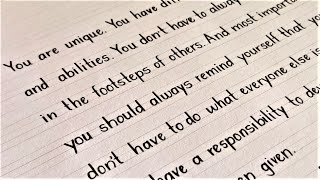 You are unique. You have di
and abilities. You don't have to always
in the footsteps of others. And most importa
you should always remind yourself that yo
don't have to do what everyone else is
have a responsibility to de
en given.